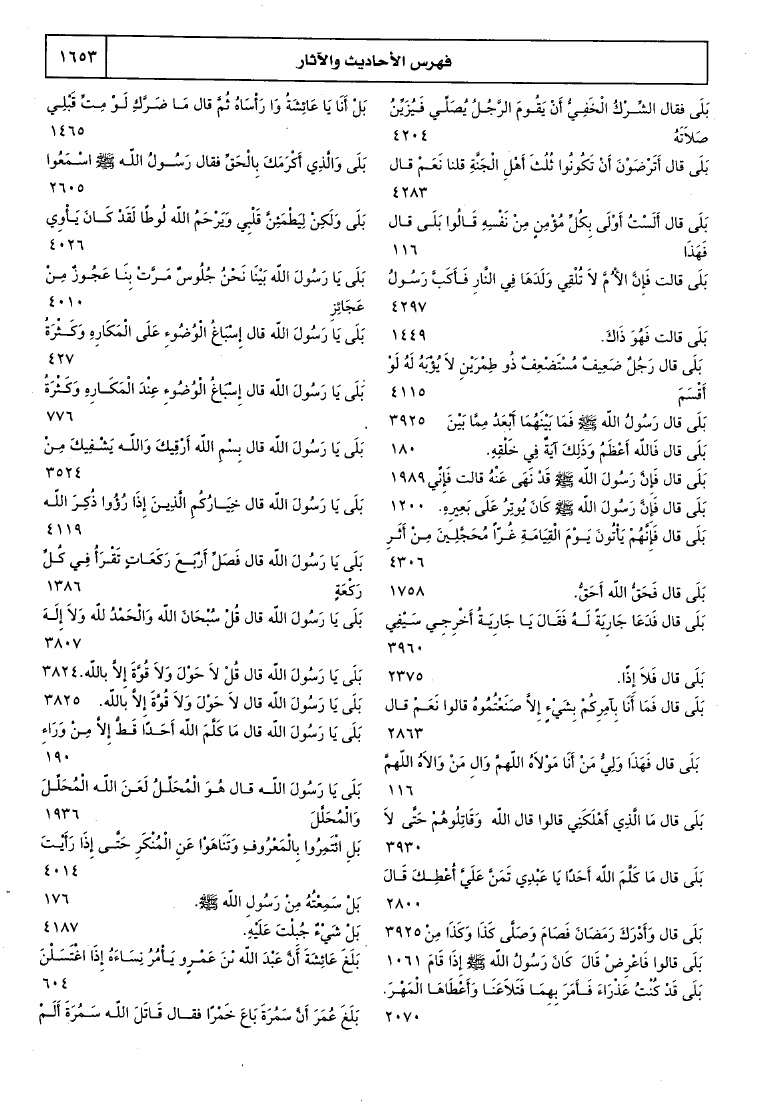 فهرس الأحاديث والآثار
١٦٥٣
بَلَى فقال الشِّرْكُ الْخَفِيُّ أَنْ يَقُومَ الرَّجُلُ يُصَلِّي فَيُزَيِّنُ
صَلاَتَهُ ٤٢٠٤
بَلَى قال أَتَرْضَوْنَ أَنْ تَكُونُوا ثُلُثَ أَهْلِ الْجَنَّةِ قلنا نَعَمْ قال
٤٢٨٣
بَلَى قال أَلَسْتُ أَوْلَى بِكُلِّ مُؤْمِنٍ مِنْ نَفْسِهِ قَالُوا بَلَى قال
فَهَذَا ١١٦
بَلَى قالت فَإِنَّ الأُمَّ لاَ تُلْقِي وَلَدَهَا فِي النَّارِ فَأَكَبَّ رَسُولُ
٤٢٩٧
بَلَى قالت فَهُوَ ذَاكَ. ١٤٤٩
بَلَى قال رَجُلٌ ضَعِيفٌ مُسْتَضْعِفٌ ذُو طِمْرَيْنِ لاَ يُؤْبَهُ لَهُ لَوْ
أَقْسَمَ ٤١١٥
بَلَى قال رَسُولُ الله ﷺ فَمَا بَيْنَهُمَا أَبْعَدُ مِمَّا بَيْنَ ٣٩٢٥
بَلَى قال فَالله أَعْظَمُ وَذَلِكَ آيَةٌ فِي خَلْقِهِ. ١٨٠
بَلَى قال فَإِنَّ رَسُولَ الله ﷺ قَدْ نَهَى عَنْهُ قالت فَإِنِّي ١٩٨٩
بَلَى قال فَإِنَّ رَسُولَ الله ﷺ كَانَ يُوتِرُ عَلَى بَعِيرِهِ. ١٢٠٠
بَلَى قال فَإِنَّهُمْ يَأْتُونَ يَوْمَ الْقِيَامَةِ غُرًّا مُحَجَّلِينَ مِنْ أَثَرِ
٤٣٠٦
بَلَى قال فَحَقُّ الله أَحَقُّ. ١٧٥٨
بَلَى قال فَدَعَا جَارِيَةً لَهُ فَقَالَ يَا جَارِيَةُ أَخْرِجِي سَيْفِي
٣٩٦٠
بَلَى قال فَلاَ إِذًا. ٢٣٧٥
بَلَى قال فَمَا أَنَا بِآمِرِكُمْ بِشَيْءٍ إِلاَّ صَنَعْتُمُوهُ قالوا نَعَمْ قال
٢٨٦٣
بَلَى قال فَهَذَا وَلِيُّ مَنْ أَنَا مَوْلاَهُ اللهمَّ وَالِ مَنْ وَالاَهُ اللهمَّ
١١٦
بَلَى قال مَا الَّذِي أَهْلَكَنِي قالوا قال الله وَقَاتِلُوهُمْ حَتَّى لاَ
٣٩٣٠
بَلَى قال مَا كَلَّمَ الله أَحَدًا يَا عَبْدِي تَمَنَّ عَلَيَّ أُعْطِكَ قَالَ
٢٨٠٠
بَلَى قال وَأَدْرَكَ رَمَضَانَ فَصَامَ وَصَلَّى كَذَا وَكَذَا مِنْ ٣٩٢٥
بَلَى قالوا فَاعْرِضْ قَالَ كَانَ رَسُولُ الله ﷺ إِذَا قَامَ ١٠٦١
بَلَى قَدْ كُنْتُ عَذْرَاءَ فَأَمَرَ بِهِمَا فَتَلاَعَنَا وَأَعْطَاهَا الْمَهْرَ.
٢٠٧٠
بَلْ أَنَا يَا عَائِشَةُ وَا رَأْسَاهُ ثُمَّ قال مَا ضَرَّكِ لَوْ مِتِّ قَبْلِي
١٤٦٥
بَلَى وَالَّذِي أَكْرَمَكَ بِالْحَقِّ فقال رَسُولُ الله ﷺ اسْمَعُوا
٢٦٠٥
بَلَى وَلَكِنْ لِيَطْمَئِنَّ قَلْبِي وَيَرْحَمُ الله لُوطًا لَقَدْ كَانَ يَأْوِي
٤٠٢٦
بَلَى يَا رَسُولَ الله بَيْنَا نَحْنُ جُلُوسٌ مَرَّتْ بِنَا عَجُوزٌ مِنْ
عَجَائِزِ ٤٠١٠
بَلَى يَا رَسُولَ الله قال إِسْبَاغُ الْوُضُوءِ عَلَى الْمَكَارِهِ وَكَثْرَةُ
٤٢٧
بَلَى يَا رَسُولَ الله قال إِسْبَاغُ الْوُضُوءِ عِنْدَ الْمَكَارِهِ وَكَثْرَةُ
٧٧٦
بَلَى يَا رَسُولَ الله قال بِسْمِ الله أَرْقِيكَ وَالله يَشْفِيكَ مِنْ
٣٥٢٤
بَلَى يَا رَسُولَ الله قال خِيَارُكُمِ الَّذِينَ إِذَا رُؤُوا ذُكِرَ الله
٤١١٩
بَلَى يَا رَسُولَ الله قال فَصَلِّ أَرْبَعَ رَكَعَاتٍ تَقْرَأُ فِي كُلِّ
رَكْعَةٍ ١٣٨٦
بَلَى يَا رَسُولَ الله قال قُلْ سُبْحَانَ الله وَالْحَمْدُ لله وَلاَ إِلَهَ
٣٨٠٧
بَلَى يَا رَسُولَ الله قال قُلْ لاَ حَوْلَ وَلاَ قُوَّةَ إِلاَّ بالله. ٣٨٢٤
بَلَى يَا رَسُولَ الله قال لاَ حَوْلَ وَلاَ قُوَّةَ إِلاَّ بالله. ٣٨٢٥
بَلَى يَا رَسُولَ الله قال مَا كَلَّمَ الله أَحَدًا قَطُّ إِلاَّ مِنْ وَرَاءِ
١٩٠
بَلَى يَا رَسُولَ الله قال هُوَ الْمُحَلِّلُ لَعَنَ الله الْمُحَلِّلَ
وَالْمُحَلَّلَ ١٩٣٦
بَلِ ائْتَمِرُوا بِالْمَعْرُوفِ وَتَنَاهَوْا عَنِ الْمُنْكَرِ حَتَّى إِذَا رَأَيْتَ
٤٠١٤
بَلْ سَمِعْتُهُ مِنْ رَسُولِ الله ﷺ. ١٧٦
بَلْ شَيْءٌ جُبِلْتَ عَلَيْهِ. ٤١٨٧
بَلَغَ عَائِشَةَ أَنَّ عَبْدَ الله بْنَ عَمْرٍو يَأْمُرُ نِسَاءَهُ إِذَا اغْتَسَلْنَ
٦٠٤
بَلَغَ عُمَرَ أَنَّ سَمُرَةَ بَاعَ خَمْرًا فقال قَاتَلَ الله سَمُرَةَ أَلَمْ